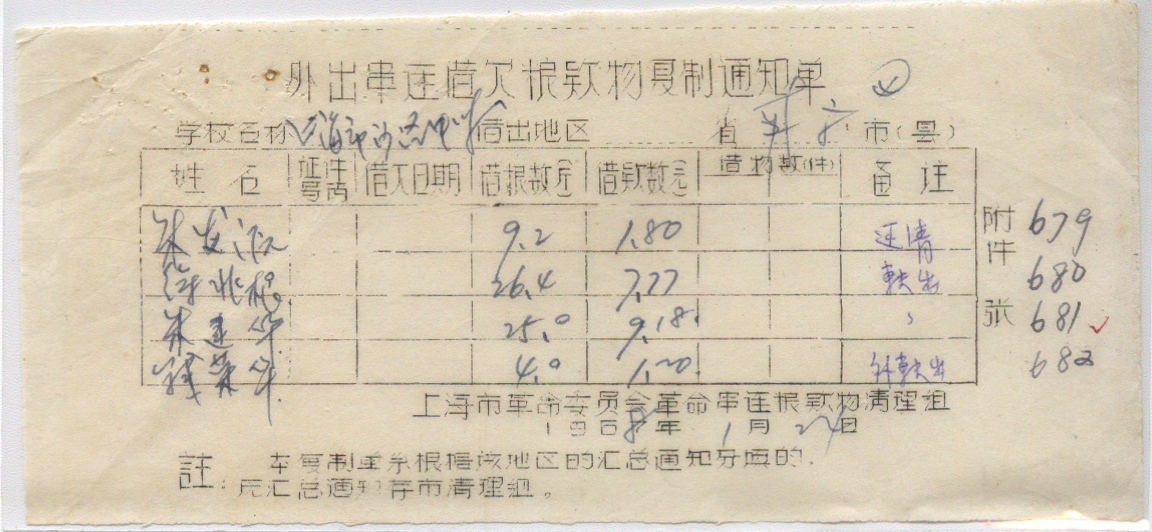 外出串连借欠粮款物复制通知单
学校名称 上海市 借出地区 省 市(县)
姓名 证件号码 借欠日期 借粮数(斤) 借款数(元) 借物数(件) 备注
朱发 9.2 1.80 还清 附件 679
26.4 7.77 转出 680
朱连华 25.0 9.18 张 681
钱荣华 4.0 1.20 外转出 682
上海市革命委员会革命串连粮款物清理组
1968年1月24日
註: 本复制单系根据该地区的汇总通知
元汇总通知存市清理组。